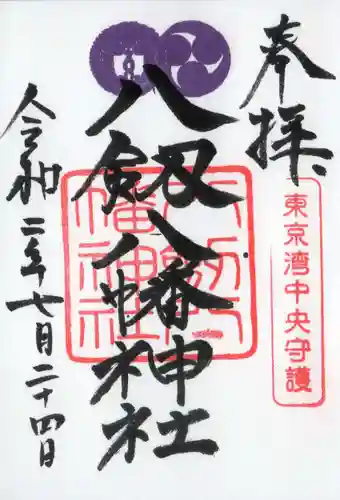 奉拝
東京湾中央守護
八剱八幡神社
八剱八
幡神社
令和二年七月二十四日